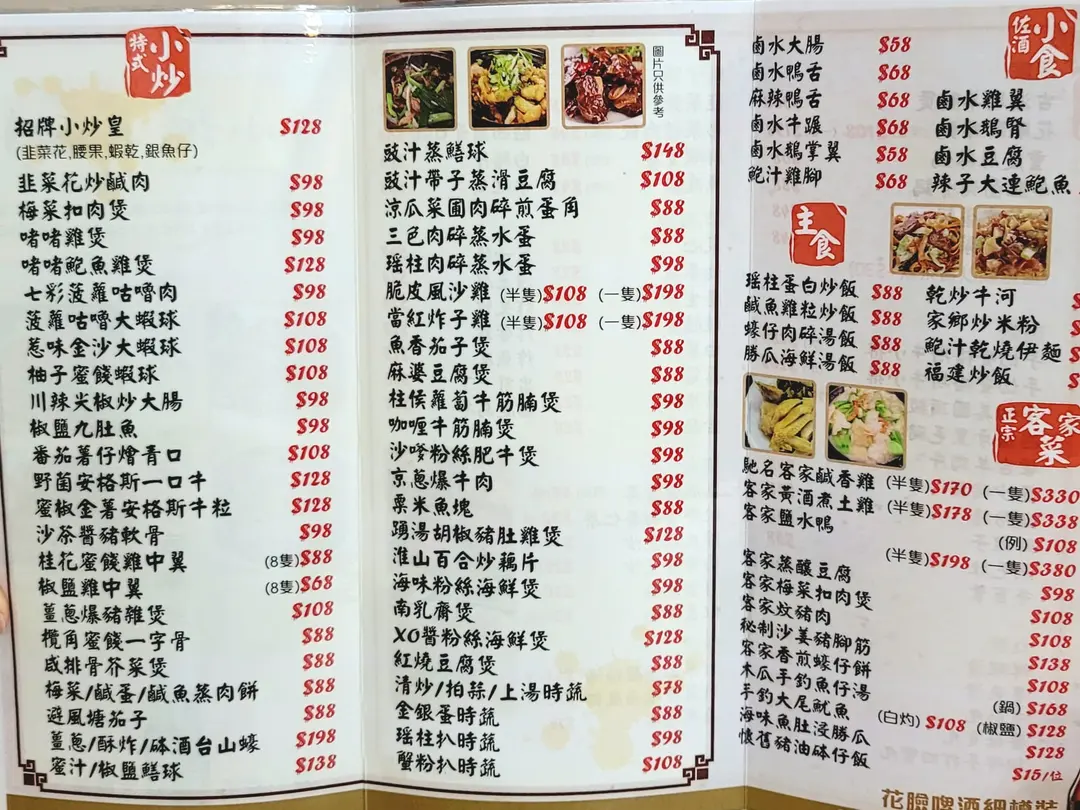 特式
小炒
招牌小炒皇 $128
(韭菜花,腰果,蝦乾,銀魚仔)
韭菜花炒鹹肉 $98
梅菜扣肉煲 $98
啫啫雞煲 $98
啫啫鮑魚雞煲 $128
七彩菠蘿咕嚕肉 $98
菠蘿咕嚕大蝦球 $108
惹味金沙大蝦球 $108
柚子蜜餞蝦球 $108
川辣尖椒炒大腸 $98
椒鹽九肚魚 $98
番茄薯仔燴青口 $108
野菌安格斯一口牛 $128
蜜椒金薯安格斯牛粒 $128
沙茶醬豬軟骨 $98
桂花蜜餞雞中翼 (8隻)$88
椒鹽雞中翼 (8隻)$68
薑蔥爆豬雜煲 $108
欖角蜜餞一字骨 $88
咸排骨芥菜煲 $88
梅菜/鹹蛋/鹹魚蒸肉餅 $88
避風塘茄子 $88
薑蔥/酥炸/砵酒台山蠔 $198
蜜汁/椒鹽鱔球 $138
圖片只供參考
豉汁蒸鱔球 $148
豉汁帶子蒸滑豆腐 $108
涼瓜菜圃肉碎煎蛋角 $88
三色肉碎蒸水蛋 $88
瑤柱肉碎蒸水蛋 $98
脆皮風沙雞 (半隻)$108 (一隻)$198
當紅炸子雞 (半隻)$108 (一隻)$198
魚香茄子煲 $88
麻婆豆腐煲 $88
柱侯蘿蔔牛筋腩煲 $98
咖喱牛筋腩煲 $98
沙嗲粉絲肥牛煲 $98
京蔥爆牛肉 $98
粟米魚塊 $88
踴湯胡椒豬肚雞煲 $128
淮山百合炒藕片 $98
海味粉絲海鮮煲 $98
南乳齋煲 $88
XO醬粉絲海鮮煲 $128
紅燒豆腐煲 $88
清炒/拍蒜/上湯時蔬 $78
金銀蛋時蔬 $88
瑤柱扒時蔬 $98
蟹粉扒時蔬 $108
佐酒
小食
鹵水大腸 $58
鹵水鴨舌 $68
麻辣鴨舌 $68 鹵水雞翼
鹵水牛𦟌 $68 鹵水鵝腎
鹵水鵝掌翼 $58 鹵水豆腐
鮑汁雞腳 $68 辣子大連鮑魚
主食
瑤柱蛋白炒飯 $88 乾炒牛河
鹹魚雞粒炒飯 $88 家鄉炒米粉
蠔仔肉碎湯飯 $88 鮑汁乾燒伊麵
勝瓜海鮮湯飯 $88 福建炒飯
正宗
客家菜
馳名客家鹹香雞 (半隻)$170 (一隻)$330
客家黃酒煮土雞 (半隻)$178 (一隻)$338
客家鹽水鴨 (例) $108
(半隻)$198 (一隻)$380
客家蒸釀豆腐 $98
客家梅菜扣肉煲 $108
客家炆豬肉 $108
秘制沙姜豬腳筋 $138
客家香煎蠔仔餅 $108
木瓜手釣魚仔湯 (鍋) $168
手釣大尾魷魚 (白灼) $108 (椒鹽) $128
海味魚肚浸勝瓜 $128
懷舊豬油砵仔飯 $15/位
花臉啤酒細樽裝